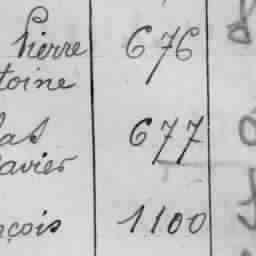 Pierre 676
toine
las 677
avier
nçois 1100